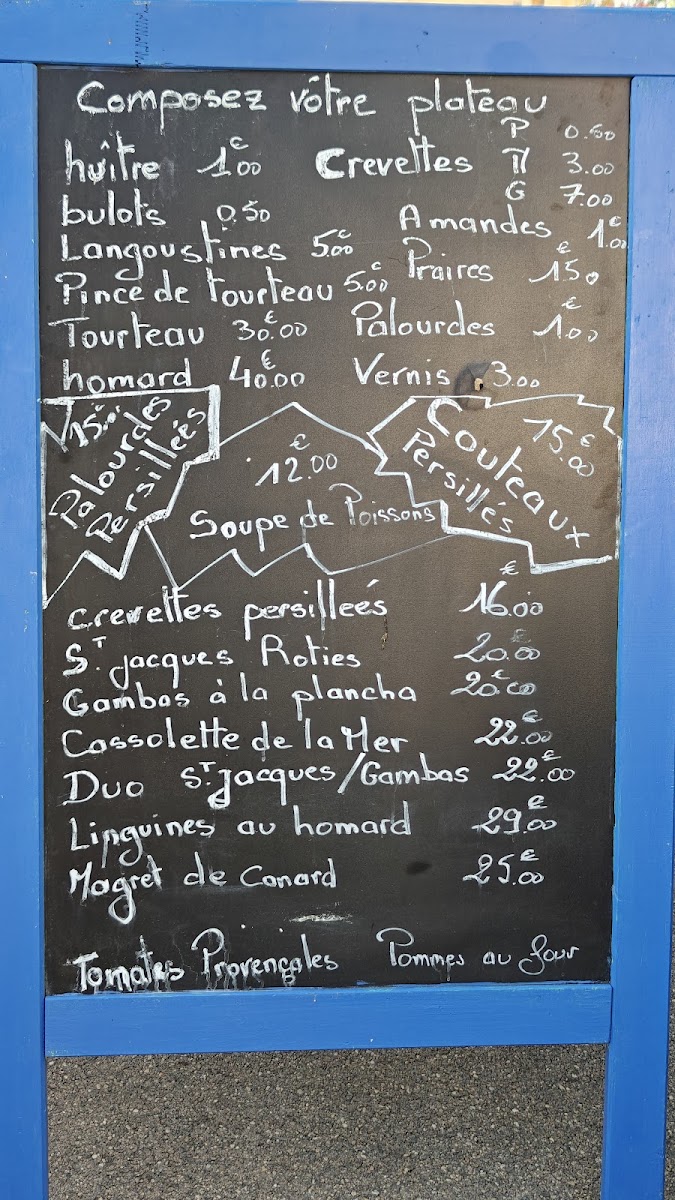 Composez vôtre plateau
huître 1€00
bulots 0.50
Langoustines 5€00
Pince de tourteau 5€00
Tourteau 30€.00
homard 40€.00
Crevettes P 0.50
M 3.00
G 7.00
Amandes 1€.00
Praires 1€50
Palourdes 1€00
Vernis 3.00
15€.00
Palourdes
Persillées
12€.00
Soupe de Poissons
15€.00
Couteaux
Persillés
crevettes persilleés 16€.00
ST. jacques Roties 20€.00
Gambas à la plancha 20€.00
Cassolette de la Mer 22€.00
Duo ST. jacques/Gambas 22€.00
Linguines au homard 29€.00
Magret de Canard 25€.00
Tomates Provençales Pommes au four